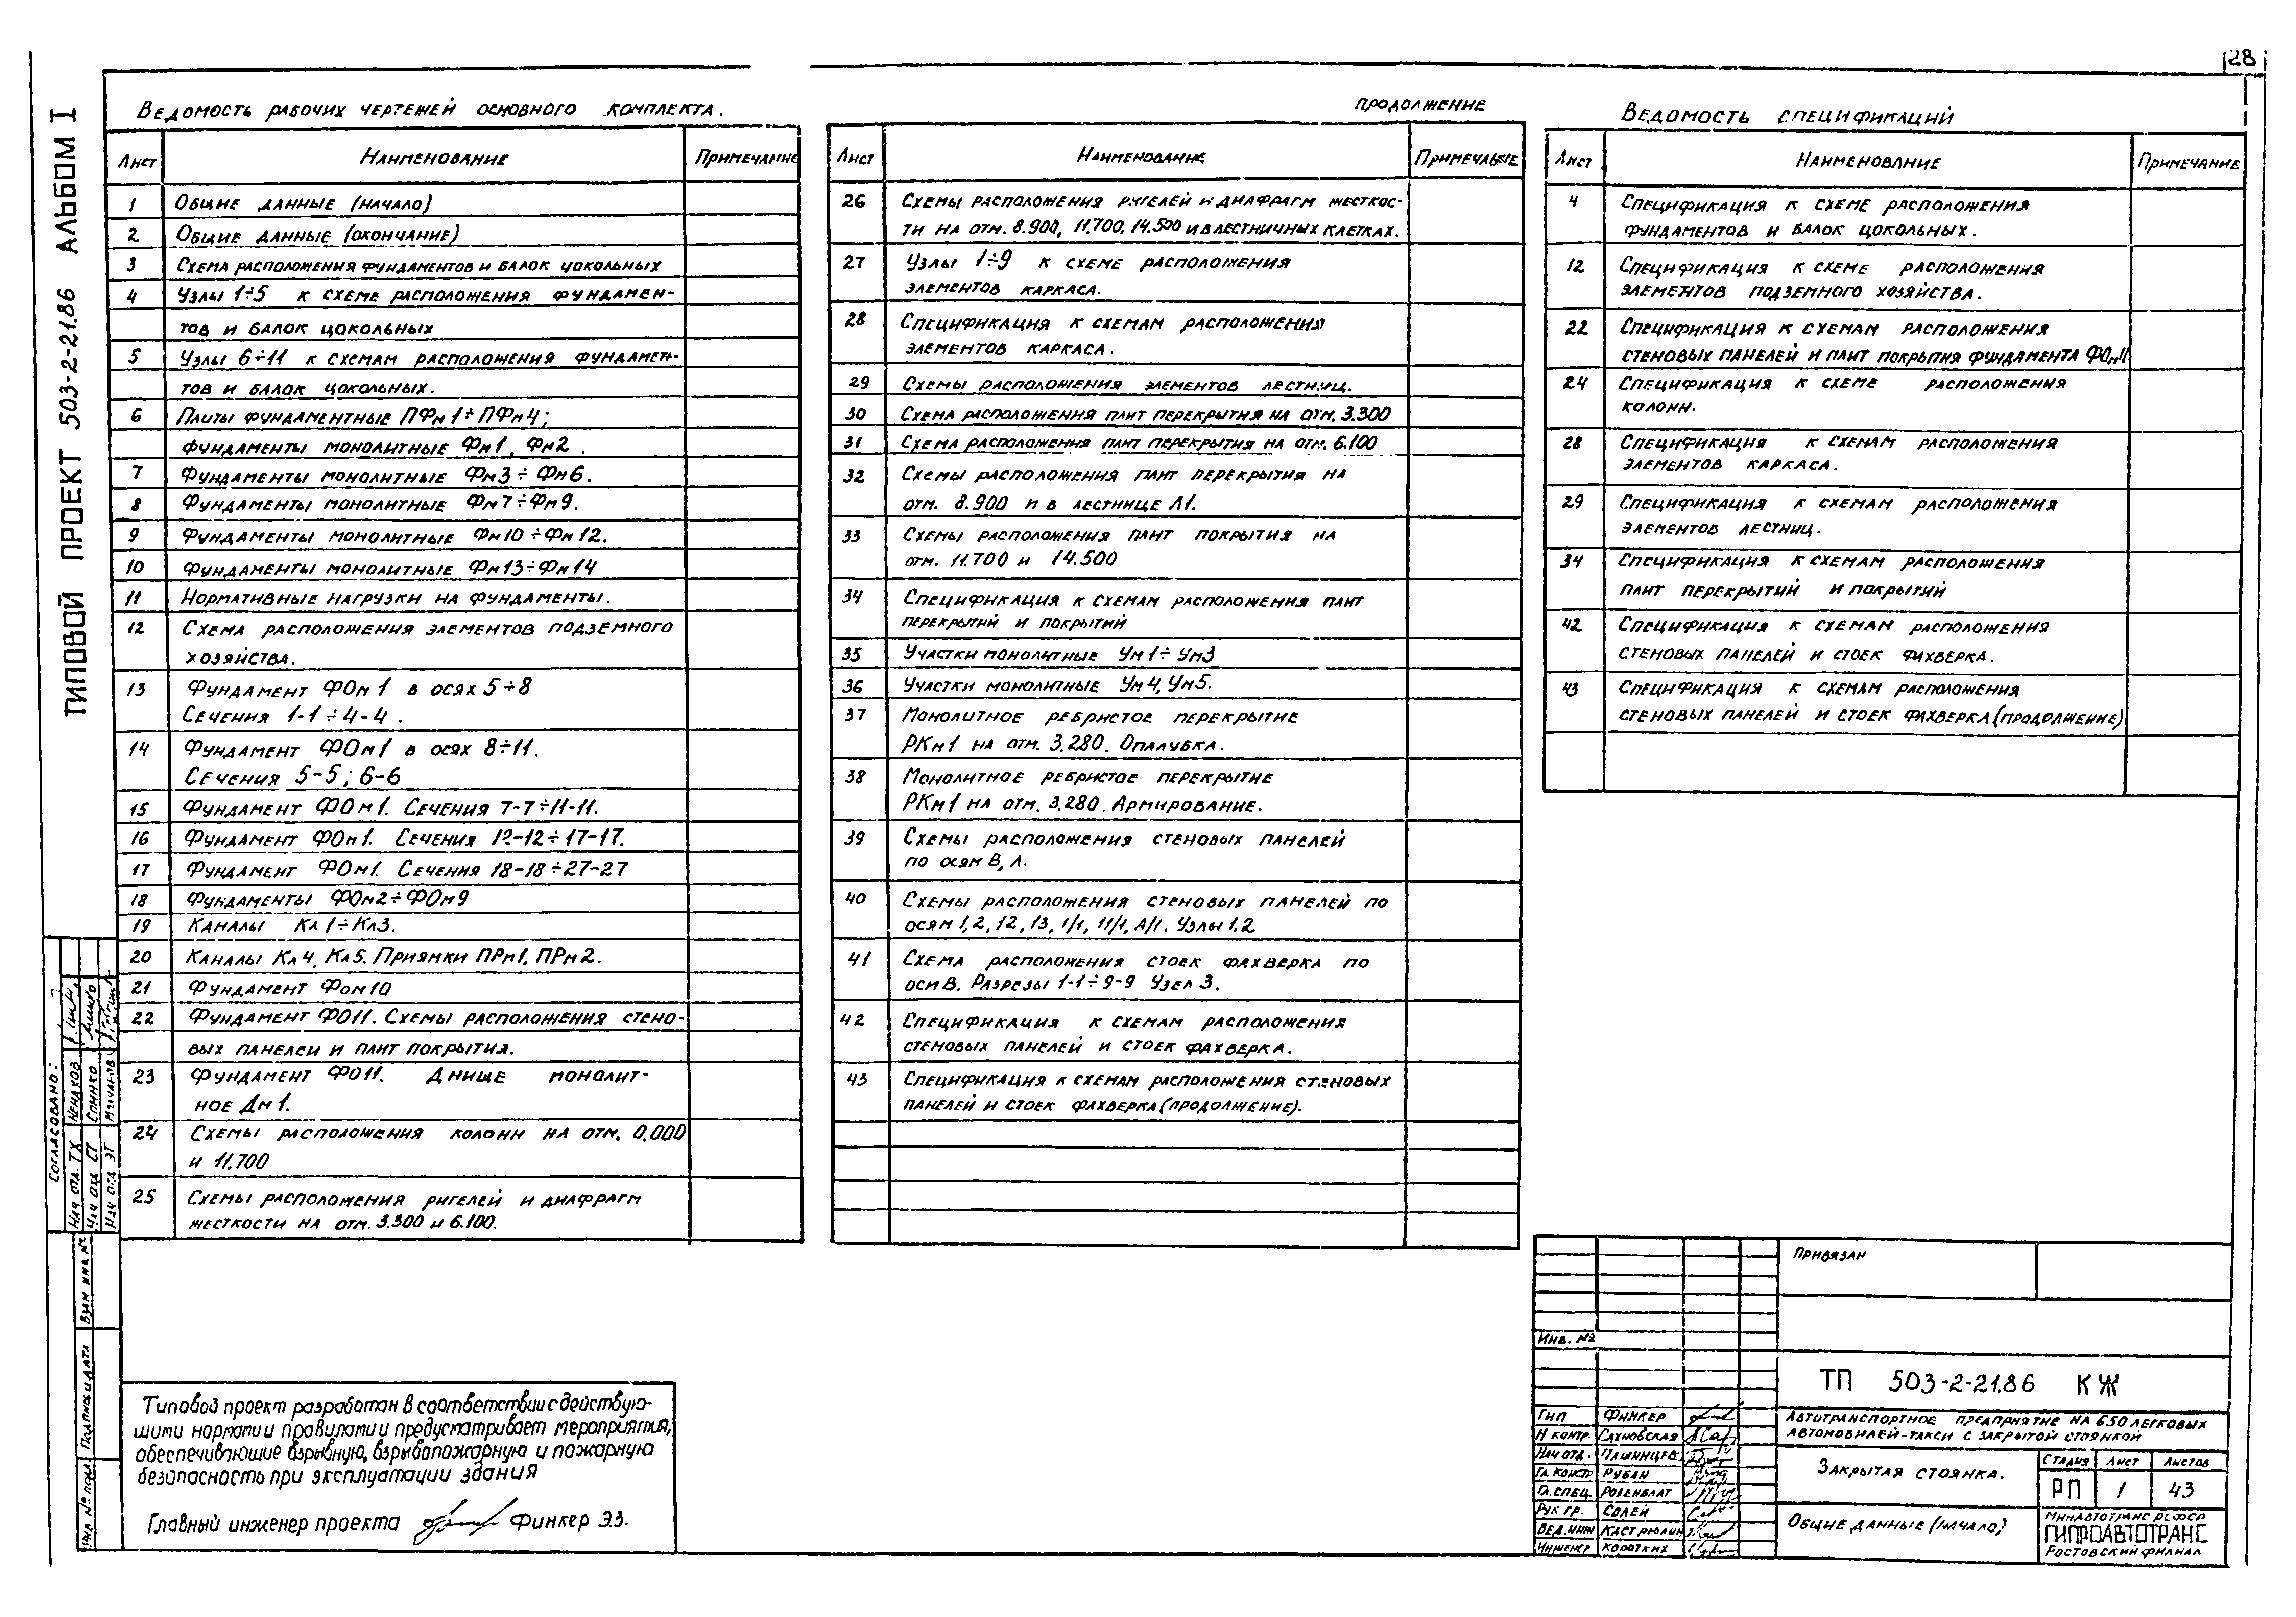 28
ТИПОВОЙ ПРОЕКТ 503-2-21.86 АЛЬБОМ I
ВЕДОМОСТЬ РАБОЧИХ ЧЕРТЕЖЕЙ ОСНОВНОГО КОМПЛЕКТА.
ЛИСТ НАИМЕНОВАНИЕ ПРИМЕЧАНИЕ
1 ОБЩИЕ ДАННЫЕ (НАЧАЛО)
2 ОБЩИЕ ДАННЫЕ (ОКОНЧАНИЕ)
3 СХЕМА РАСПОЛОЖЕНИЯ ФУНДАМЕНТОВ И БАЛОК ЦОКОЛЬНЫХ
4 УЗЛЫ 1÷5 К СХЕМЕ РАСПОЛОЖЕНИЯ ФУНДАМЕН-
ТОВ И БАЛОК ЦОКОЛЬНЫХ
5 УЗЛЫ 6÷11 К СХЕМАМ РАСПОЛОЖЕНИЯ ФУНДАМЕН-
ТОВ И БАЛОК ЦОКОЛЬНЫХ.
6 ПЛИТЫ ФУНДАМЕНТНЫЕ ПФм1÷ПФм4;
ФУНДАМЕНТЫ МОНОЛИТНЫЕ Фм1, Фм2.
7 ФУНДАМЕНТЫ МОНОЛИТНЫЕ Фм3÷Фм6.
8 ФУНДАМЕНТЫ МОНОЛИТНЫЕ Фм7÷Фм9.
9 ФУНДАМЕНТЫ МОНОЛИТНЫЕ Фм10÷Фм12.
10 ФУНДАМЕНТЫ МОНОЛИТНЫЕ Фм13÷Фм14
11 НОРМАТИВНЫЕ НАГРУЗКИ НА ФУНДАМЕНТЫ.
12 СХЕМА РАСПОЛОЖЕНИЯ ЭЛЕМЕНТОВ ПОДЗЕМНОГО
ХОЗЯЙСТВА.
13 ФУНДАМЕНТ ФОм1 В ОСЯХ 5÷8
СЕЧЕНИЯ 1-1÷4-4.
14 ФУНДАМЕНТ ФОм1 В ОСЯХ 8÷11.
СЕЧЕНИЯ 5-5; 6-6
15 ФУНДАМЕНТ ФОм1. СЕЧЕНИЯ 7-7÷11-11.
16 ФУНДАМЕНТ ФОм1. СЕЧЕНИЯ 12-12÷17-17.
17 ФУНДАМЕНТ ФОм1. СЕЧЕНИЯ 18-18÷27-27
18 ФУНДАМЕНТЫ ФОм2÷ФОм9
19 КАНАЛЫ Кл1÷Кл3.
20 КАНАЛЫ Кл4, Кл5. ПРИЯМКИ ПРм1, ПРм2.
21 ФУНДАМЕНТ Фом10
22 ФУНДАМЕНТ ФО11. СХЕМЫ РАСПОЛОЖЕНИЯ СТЕНО-
ВЫХ ПАНЕЛЕИ И ПЛИТ ПОКРЫТИЯ.
23 ФУНДАМЕНТ ФО11. ДНИЩЕ МОНОЛИТ-
НОЕ Дм1.
24 СХЕМЫ РАСПОЛОЖЕНИЯ КОЛОНН НА ОТМ. 0.000
И 11.700
25 СХЕМЫ РАСПОЛОЖЕНИЯ РИГЕЛЕЙ И ДИАФРАГМ
ЖЕСТКОСТИ НА ОТМ. 3.300 И 6.100.
ПРОДОЛЖЕНИЕ
ЛИСТ НАИМЕНОВАНИЕ ПРИМЕЧАНИЕ
26 СХЕМЫ РАСПОЛОЖЕНИЯ РИГЕЛЕЙ И ДИАФРАГМ ЖЕСТКОС-
ТИ НА ОТМ. 8.900, 11.700, 14.500 И В ЛЕСТНИЧНЫХ КЛЕТКАХ.
27 УЗЛЫ 1÷9 К СХЕМЕ РАСПОЛОЖЕНИЯ
ЭЛЕМЕНТОВ КАРКАСА.
28 СПЕЦИФИКАЦИЯ К СХЕМАМ РАСПОЛОЖЕНИЯ
ЭЛЕМЕНТОВ КАРКАСА.
29 СХЕМЫ РАСПОЛОЖЕНИЯ ЭЛЕМЕНТОВ ЛЕСТНИЦ.
30 СХЕМА РАСПОЛОЖЕНИЯ ПЛИТ ПЕРЕКРЫТИЯ НА ОТМ. 3.300
31 СХЕМА РАСПОЛОЖЕНИЯ ПЛИТ ПЕРЕКРЫТИЯ НА ОТМ. 6.100
32 СХЕМЫ РАСПОЛОЖЕНИЯ ПЛИТ ПЕРЕКРЫТИЯ НА
ОТМ. 8.900 И В ЛЕСТНИЦЕ Л1.
33 СХЕМЫ РАСПОЛОЖЕНИЯ ПЛИТ ПОКРЫТИЯ НА
ОТМ. 11.700 И 14.500
34 СПЕЦИФИКАЦИЯ К СХЕМАМ РАСПОЛОЖЕНИЯ ПЛИТ
ПЕРЕКРЫТИЙ И ПОКРЫТИЙ
35 УЧАСТКИ МОНОЛИТНЫЕ Ум1÷Ум3
36 УЧАСТКИ МОНОЛИТНЫЕ Ум4, Ум5.
37 МОНОЛИТНОЕ РЕБРИСТОЕ ПЕРЕКРЫТИЕ
РКм1 НА ОТМ. 3.280. ОПАЛУБКА.
38 МОНОЛИТНОЕ РЕБРИСТОЕ ПЕРЕКРЫТИЕ
РКм1 НА ОТМ. 3.280. АРМИРОВАНИЕ.
39 СХЕМЫ РАСПОЛОЖЕНИЯ СТЕНОВЫХ ПАНЕЛЕЙ
ПО ОСЯМ В, Л.
40 СХЕМЫ РАСПОЛОЖЕНИЯ СТЕНОВЫХ ПАНЕЛЕЙ ПО
ОСЯМ 1, 2, 12, 13, 1/1, 11/1, А/1. УЗЛЫ 1.2
41 СХЕМА РАСПОЛОЖЕНИЯ СТОЕК ФАХВЕРКА ПО
ОСИ В. РАЗРЕЗЫ 1-1÷9-9 УЗЕЛ 3.
42 СПЕЦИФИКАЦИЯ К СХЕМАМ РАСПОЛОЖЕНИЯ
СТЕНОВЫХ ПАНЕЛЕЙ И СТОЕК ФАХВЕРКА.
43 СПЕЦИФИКАЦИЯ К СХЕМАМ РАСПОЛОЖЕНИЯ СТЕНОВЫХ
ПАНЕЛЕЙ И СТОЕК ФАХВЕРКА (ПРОДОЛЖЕНИЕ).
ВЕДОМОСТЬ СПЕЦИФИКАЦИЙ
ЛИСТ НАИМЕНОВАНИЕ ПРИМЕЧАНИЕ
4 СПЕЦИФИКАЦИЯ К СХЕМЕ РАСПОЛОЖЕНИЯ
ФУНДАМЕНТОВ И БАЛОК ЦОКОЛЬНЫХ.
12 СПЕЦИФИКАЦИЯ К СХЕМЕ РАСПОЛОЖЕНИЯ
ЭЛЕМЕНТОВ ПОДЗЕМНОГО ХОЗЯЙСТВА.
22 СПЕЦИФИКАЦИЯ К СХЕМАМ РАСПОЛОЖЕНИЯ
СТЕНОВЫХ ПАНЕЛЕЙ И ПЛИТ ПОКРЫТИЯ ФУНДАМЕНТА ФОм11
24 СПЕЦИФИКАЦИЯ К СХЕМЕ РАСПОЛОЖЕНИЯ
КОЛОНН.
28 СПЕЦИФИКАЦИЯ К СХЕМАМ РАСПОЛОЖЕНИЯ
ЭЛЕМЕНТОВ КАРКАСА.
29 СПЕЦИФИКАЦИЯ К СХЕМАМ РАСПОЛОЖЕНИЯ
ЭЛЕМЕНТОВ ЛЕСТНИЦ.
34 СПЕЦИФИКАЦИЯ К СХЕМАМ РАСПОЛОЖЕНИЯ
ПЛИТ ПЕРЕКРЫТИЙ И ПОКРЫТИЙ
42 СПЕЦИФИКАЦИЯ К СХЕМАМ РАСПОЛОЖЕНИЯ
СТЕНОВЫХ ПАНЕЛЕЙ И СТОЕК ФАХВЕРКА.
43 СПЕЦИФИКАЦИЯ К СХЕМАМ РАСПОЛОЖЕНИЯ
СТЕНОВЫХ ПАНЕЛЕЙ И СТОЕК ФАХВЕРКА (ПРОДОЛЖЕНИЕ)
СОГЛАСОВАНО:
НАЧ ОТД. ТХ НЕНАХОВ
НАЧ ОТД СТ СПИНКО
НАЧ ОТД ЭТ
ИНВ № ПОДЛ. ПОДПИСЬ И ДАТА ВЗАМ ИНВ №
Типовой проект разработан в соответствии с действую-
щими нормами и правилами и предусматривает мероприятия,
обеспечивающие взрывную, взрывопожарную и пожарную
безопасность при эксплуатации здания
Главный инженер проекта Финкер Э.З.
ПРИВЯЗАН
ИНВ. №
ТП 503-2-21.86 КЖ
ГИП ФИНКЕР
Н КОНТР. САХНОВСКАЯ
НАЧ ОТД. ПШИНЦЕВ
ГЛ. КОНСТР РУБАН
ГЛ. СПЕЦ. РОЗЕНБЛАТ
РУК ГР. СОЛЕЙ
ВЕД. ИНЖ КАСТРЮЛИН
ИНЖЕНЕР КОРОТКИХ
АВТОТРАНСПОРТНОЕ ПРЕДПРИЯТИЕ НА 650 ЛЕГКОВЫХ
АВТОМОБИЛЕЙ-ТАКСИ С ЗАКРЫТОЙ СТОЯНКОЙ
ЗАКРЫТАЯ СТОЯНКА.
СТАДИЯ ЛИСТ ЛИСТОВ
РП 1 43
ОБЩИЕ ДАННЫЕ (НАЧАЛО)
МИНАВТОТРАНС РСФСР
ГИПРОАВТОТРАНС
РОСТОВСКИЙ ФИЛИАЛ